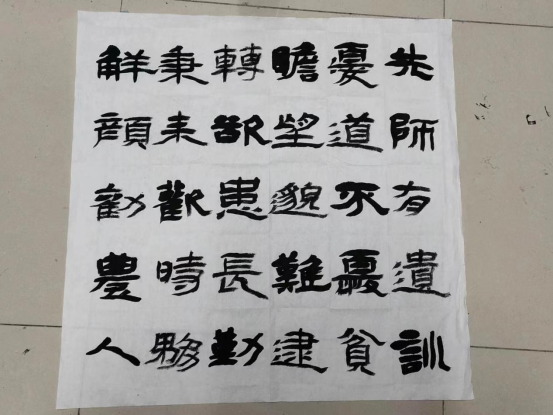 先師有遺訓
憂道不憂貧
瞻望邈難逮
轉欲患長勤
秉耒歡時務
觧顏勸農人